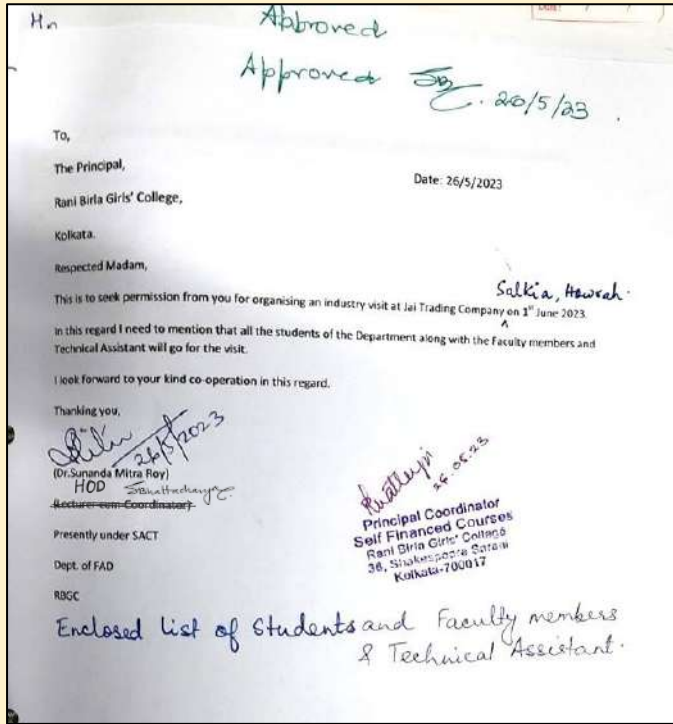 Hn
Approved
Date: / /
Approved 26/5/23.
To,
The Principal,
Date: 26/5/2023
Rani Birla Girls' College,
Kolkata.
Respected Madam,
Salkia, Howrah.
This is to seek permission from you for organising an industry visit at Jai Trading Company on 1st June 2023.
In this regard I need to mention that all the students of the Department along with the Faculty members and
Technical Assistant will go for the visit.
I look forward to your kind co-operation in this regard.
Thanking you,
26/5/2023
(Dr.Sunanda Mitra Roy)
HOD SBhattacharya
(Lecturer cum Coordinator)
26.05.23
Principal Coordinator
Self Financed Courses
Rani Birla Girls' College
38, Shakespeare Sarani
Kolkata-700017
Presently under SACT
Dept. of FAD
RBGC
Enclosed list of Students and Faculty members
& Technical Assistant.